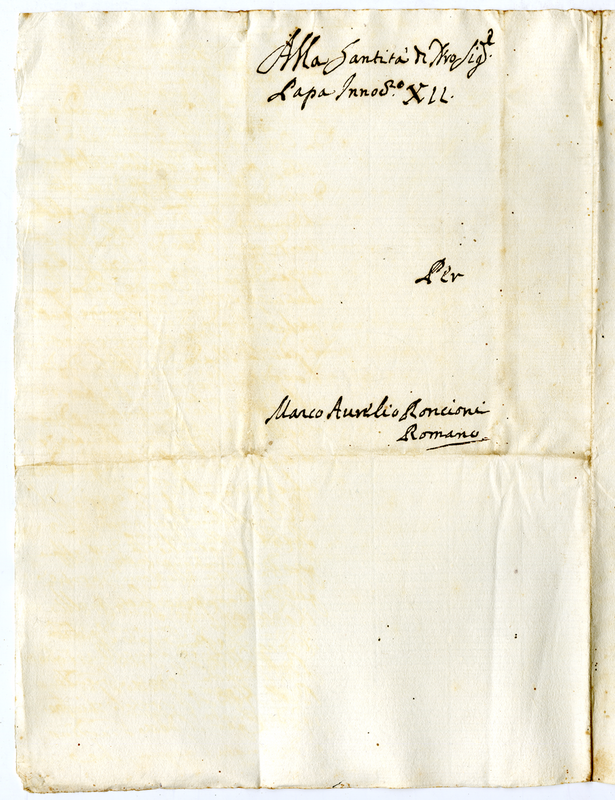 Alla Santità di Nro Sig.re
Papa Innoc.o XII.
Per
Marco Aurelio Roncioni
Romano